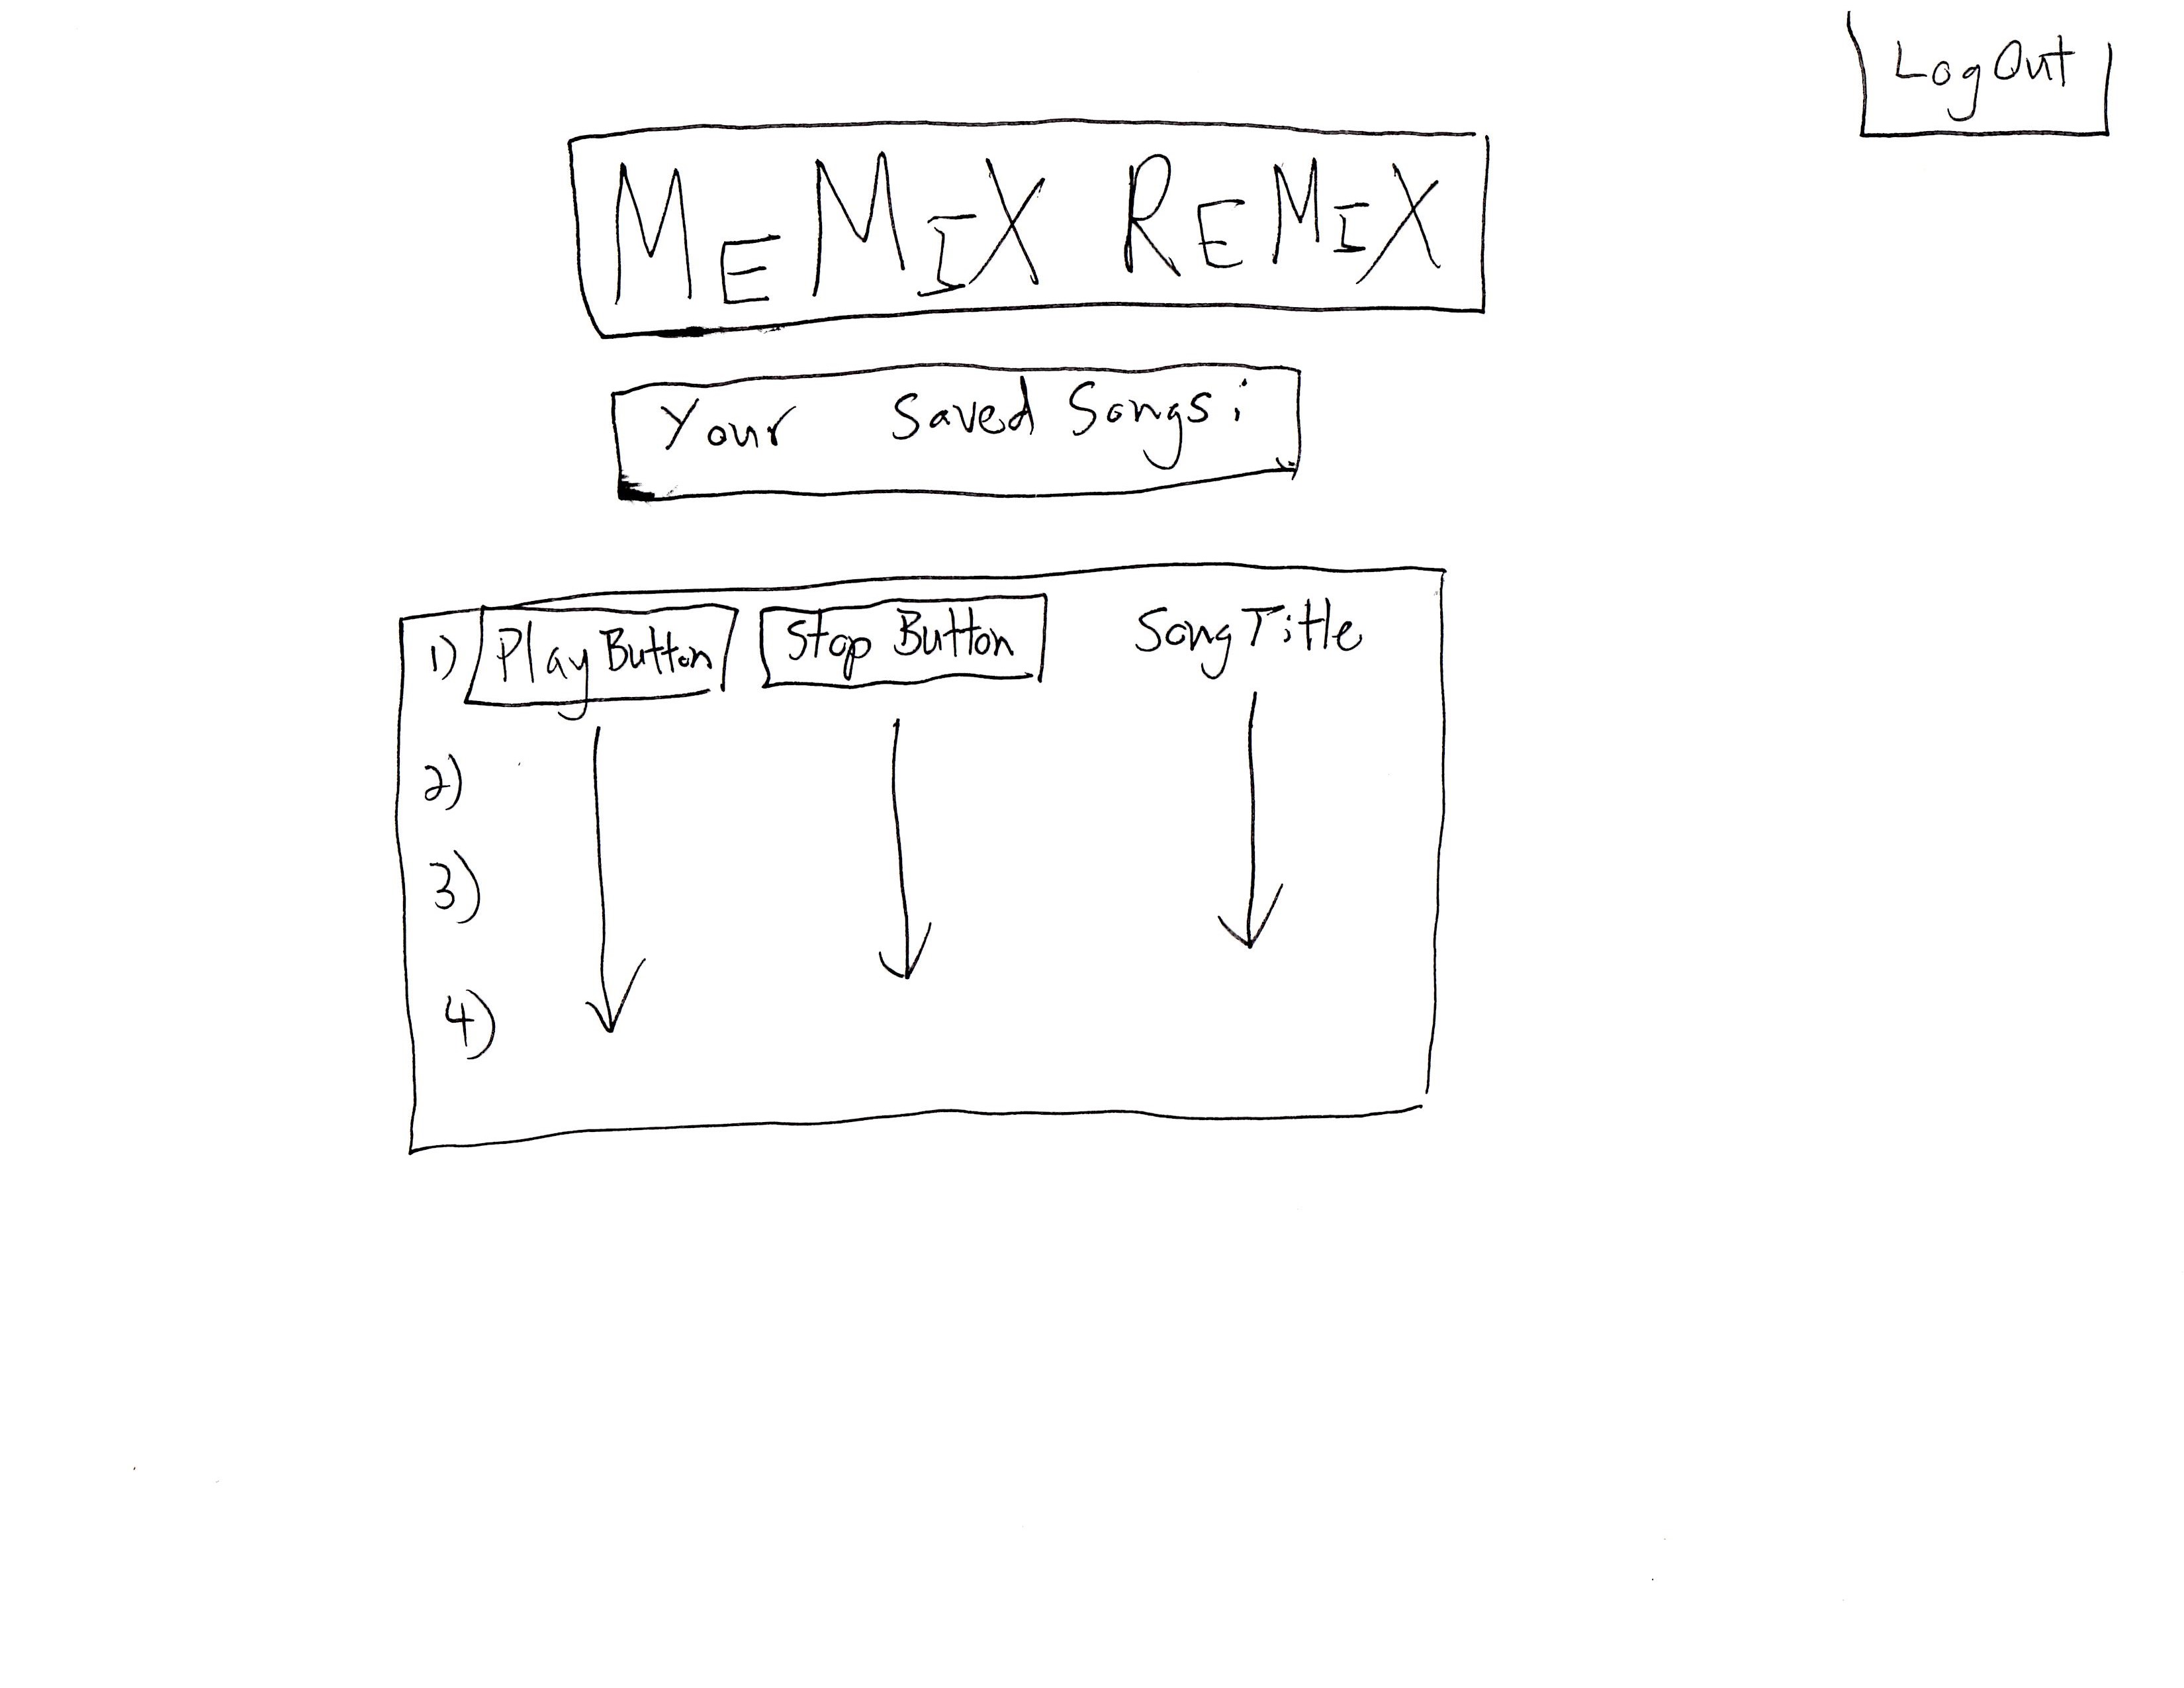 LogOut
MEMIX REMIX
Your Saved Songs:
1) Play Button Stop Button Song Title
2)
3)
4)